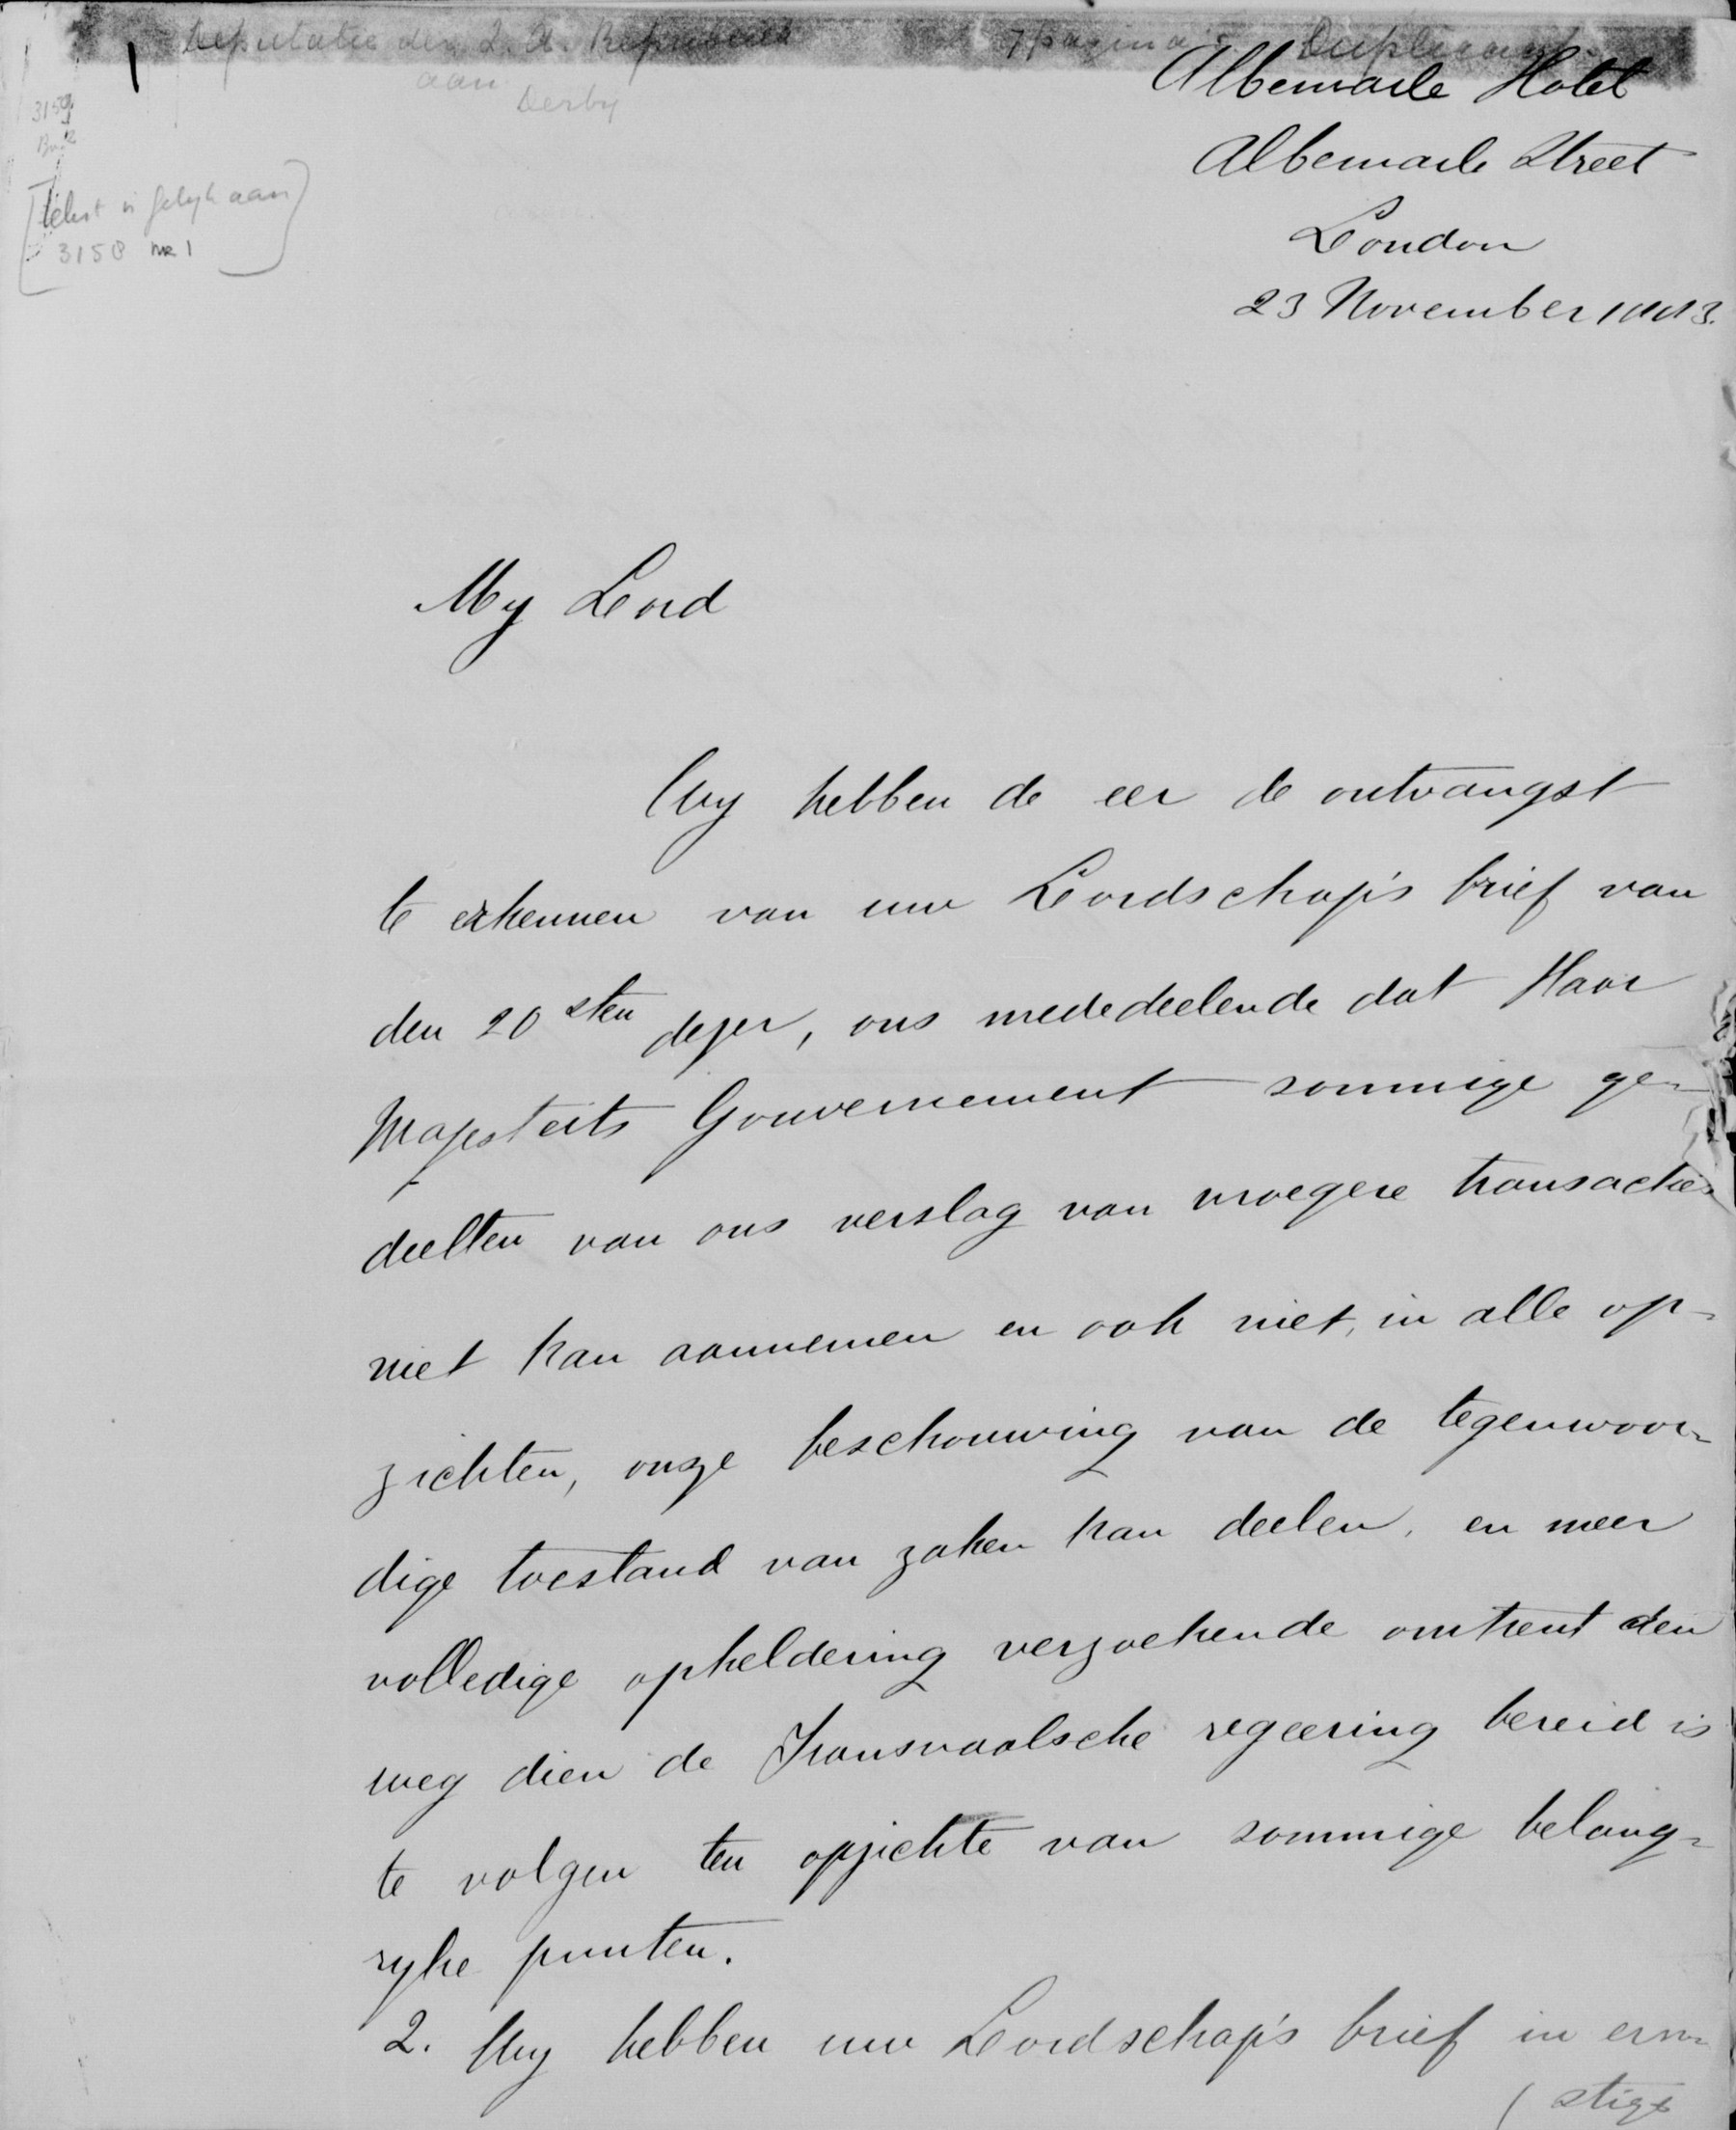 Deputatie der Z. A. Republiek
aan
Derby
7 pagina's Duplicaat.
3159
[Tekst is gelijk aan
3158 nr 1]
Albemarle Hotel
Albemarle Street
London
23 November 1883.
My Lord
Wy hebben de eer de ontvangst
te erkennen van uw Lordschap's brief van
den 20sten dezer, ons mededeelende dat Haar
Majesteits Gouvernement sommige ge-
deelten van ons verslag van vroegere transacties
niet kan aannemen en ook niet, in alle op-
zichten, onze beschouwing van de tegenwoor-
dige toestand van zaken kan deelen, en meer
volledige opheldering verzoekende omtrent den
weg dien de Transvaalsche regeering bereid is
te volgen ten opzichte van sommige belang-
ryke punten.
2. Wy hebben uw Lordschap's brief in ern-
(stige